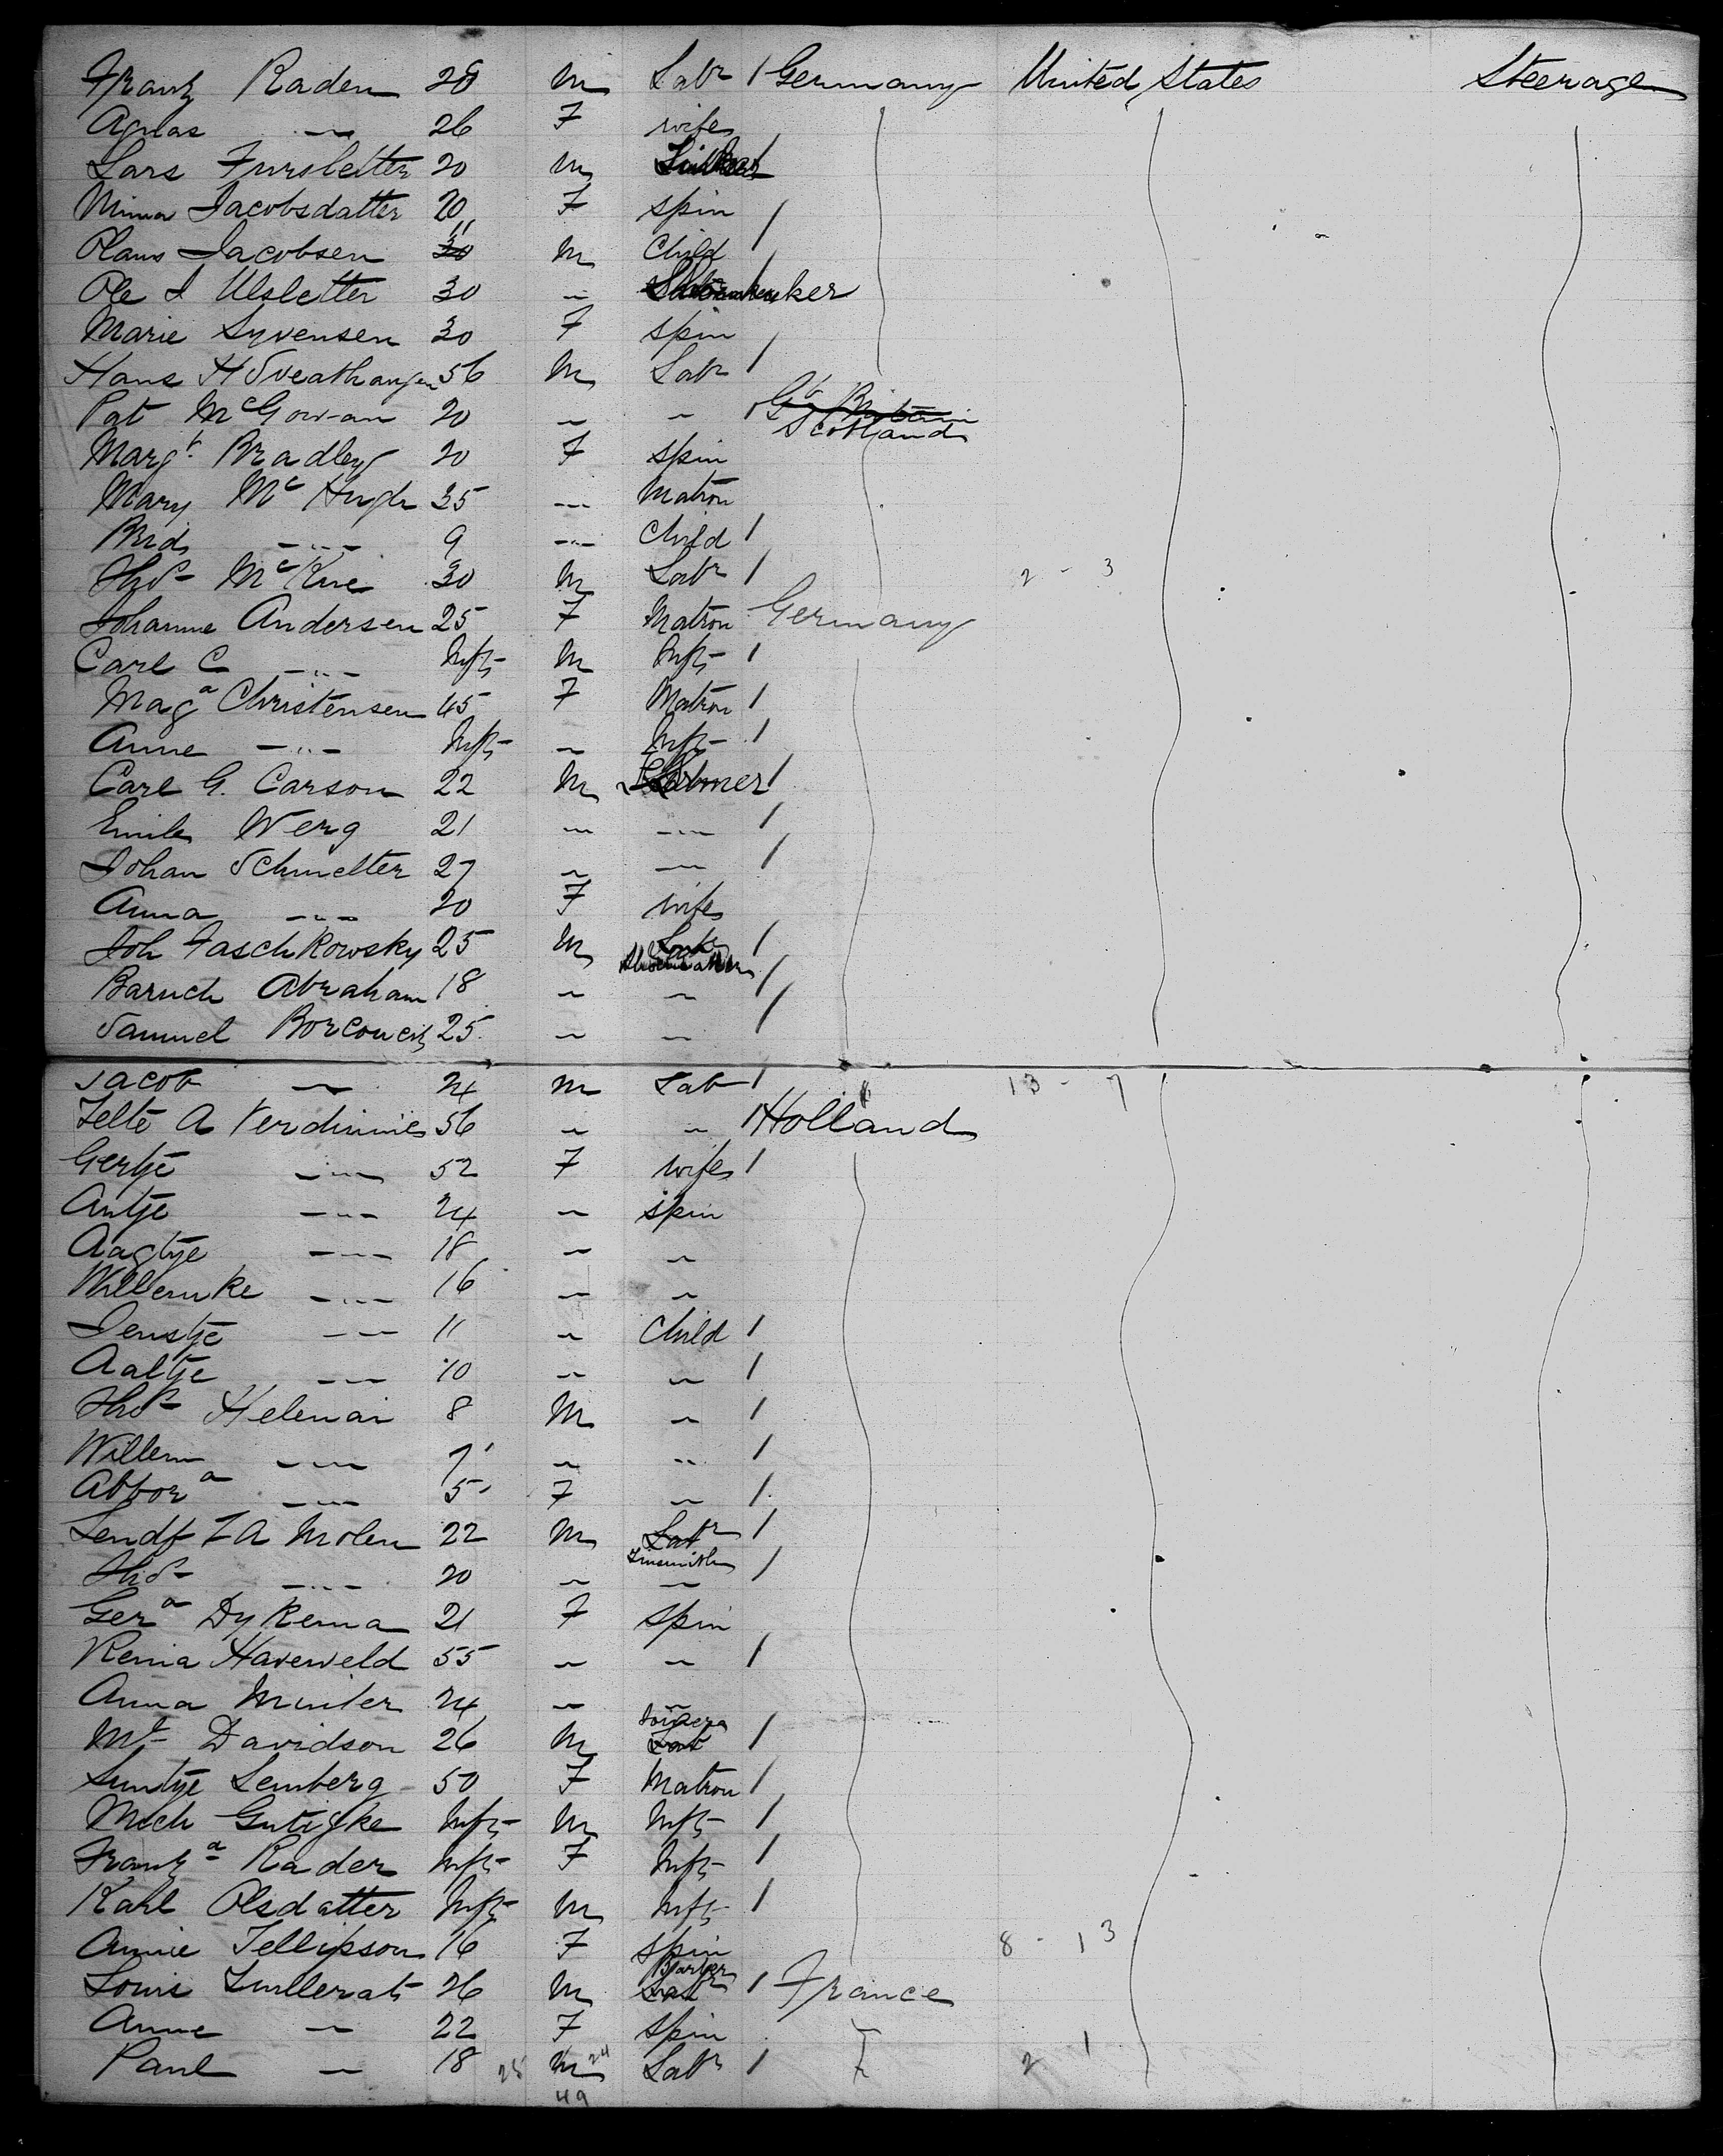 Frank Raden 28 m Labr / Germany United States Steerage
Agnas — 26 F wife
Lars 20 m
Minna Jacobsdatter 20 F spin /
Olaus Jacobsen 11 m Child /
Ole J Ulsletter 30 "
Marie Syvensen 30 F spin
Hans H 56 M Labr /
Pat McGowan 20 " " / Gt Britain Scotland
Margt Bradley 20 F spin
Mary McHugh 35 " Matron
Brid — " — 9 " Child /
Thos McKue 30 M Labr / 2 - 3
Johanne Andersen 25 F Matron Germany
Carl C — " — Inft M Inft /
Maga Christensen 45 F Matron /
Anne — " — Inft " Inft /
Carl G. Carson 22 M Farmer /
Emile Werg 21 " " /
Johan Schmelter 27 " " /
Anna — " — 20 F wife
Joh Jaschkowsky 25 M Labr Shoemaker /
Baruch Abraham 18 " " /
Samuel 25 " " /
Jacob — 24 m Lab / 13 - 7
Jelte A 56 " " / Holland
Gertje — " — 52 F wife /
Antje — " — 24 " spin
Aagtje — " — 18 " "
Willemke — " — 16 " "
Jenstje — " — 11 " Child /
Aaltje — " — 10 " " /
Thos Helenai 8 M " /
Willem — " — 7 " " /
Abbora — " — 5 F " /
Molen 22 M Labr Tinsmith /
Thos — " — 20 " " /
Gera Dykema 21 F spin
Renia Haverveld 55 " " /
Anna Minter 24 " "
Mt Davidson 26 M Lab /
Suntje Lemberg 50 F Matron /
Mich Inft M Inft /
Franka Rader Inft F Inft /
Karl Olsdatter Inft M Inft /
Annie Tellipson 16 F spin 8 - 13
Louis 26 M Labr Barber / France
Anne — 22 F spin "
Paul — 18 25 M 24 Labr / 2 1
49